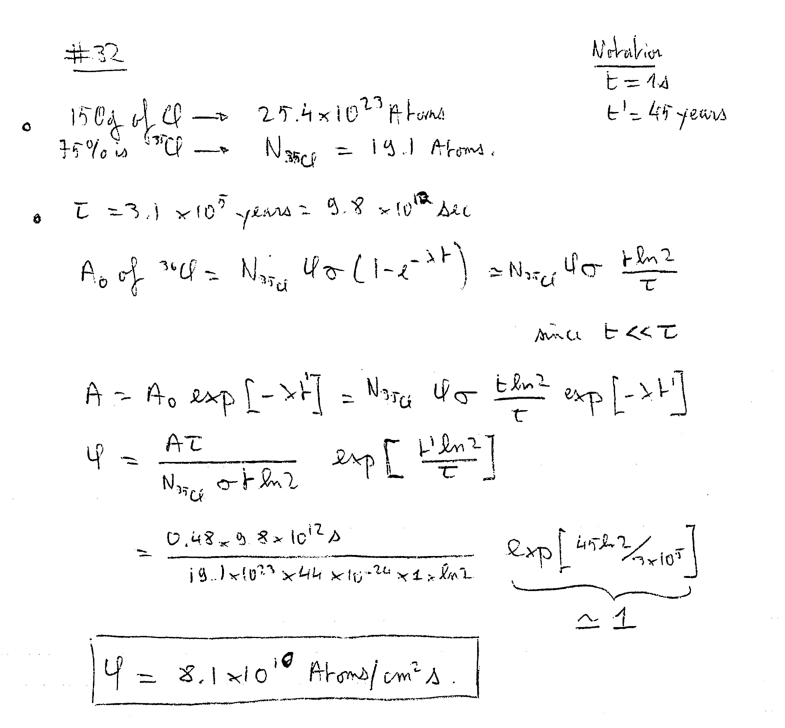 #32
Notation
t = 1s
t' = 45 years
150g of Cl → 25.4×10²³ Atoms
75% is ³⁵Cl → N₃₅Cl = 19.1 Atoms.
τ = 3.1 ×10⁵ years = 9.8 ×10¹² sec
A₀ of ³⁶Cl = N₃₅Cl φσ(1-e^-λt) ≃ N₃₅Cl φσ t ln2 / τ
since t << τ
A = A₀ exp[-λt'] = N₃₅Cl φσ t ln2 / τ exp[-λt']
φ = Aτ / N₃₅Cl σ t ln2 exp[t' ln2 / τ]
= 0.48 × 9.8×10¹² s / 19.1×10²³ × 44 ×10⁻²⁴ × 1 × ln2 exp[45 ln2 / 3×10⁵]
≃ 1
φ = 8.1×10¹⁰ Atoms/cm² s.